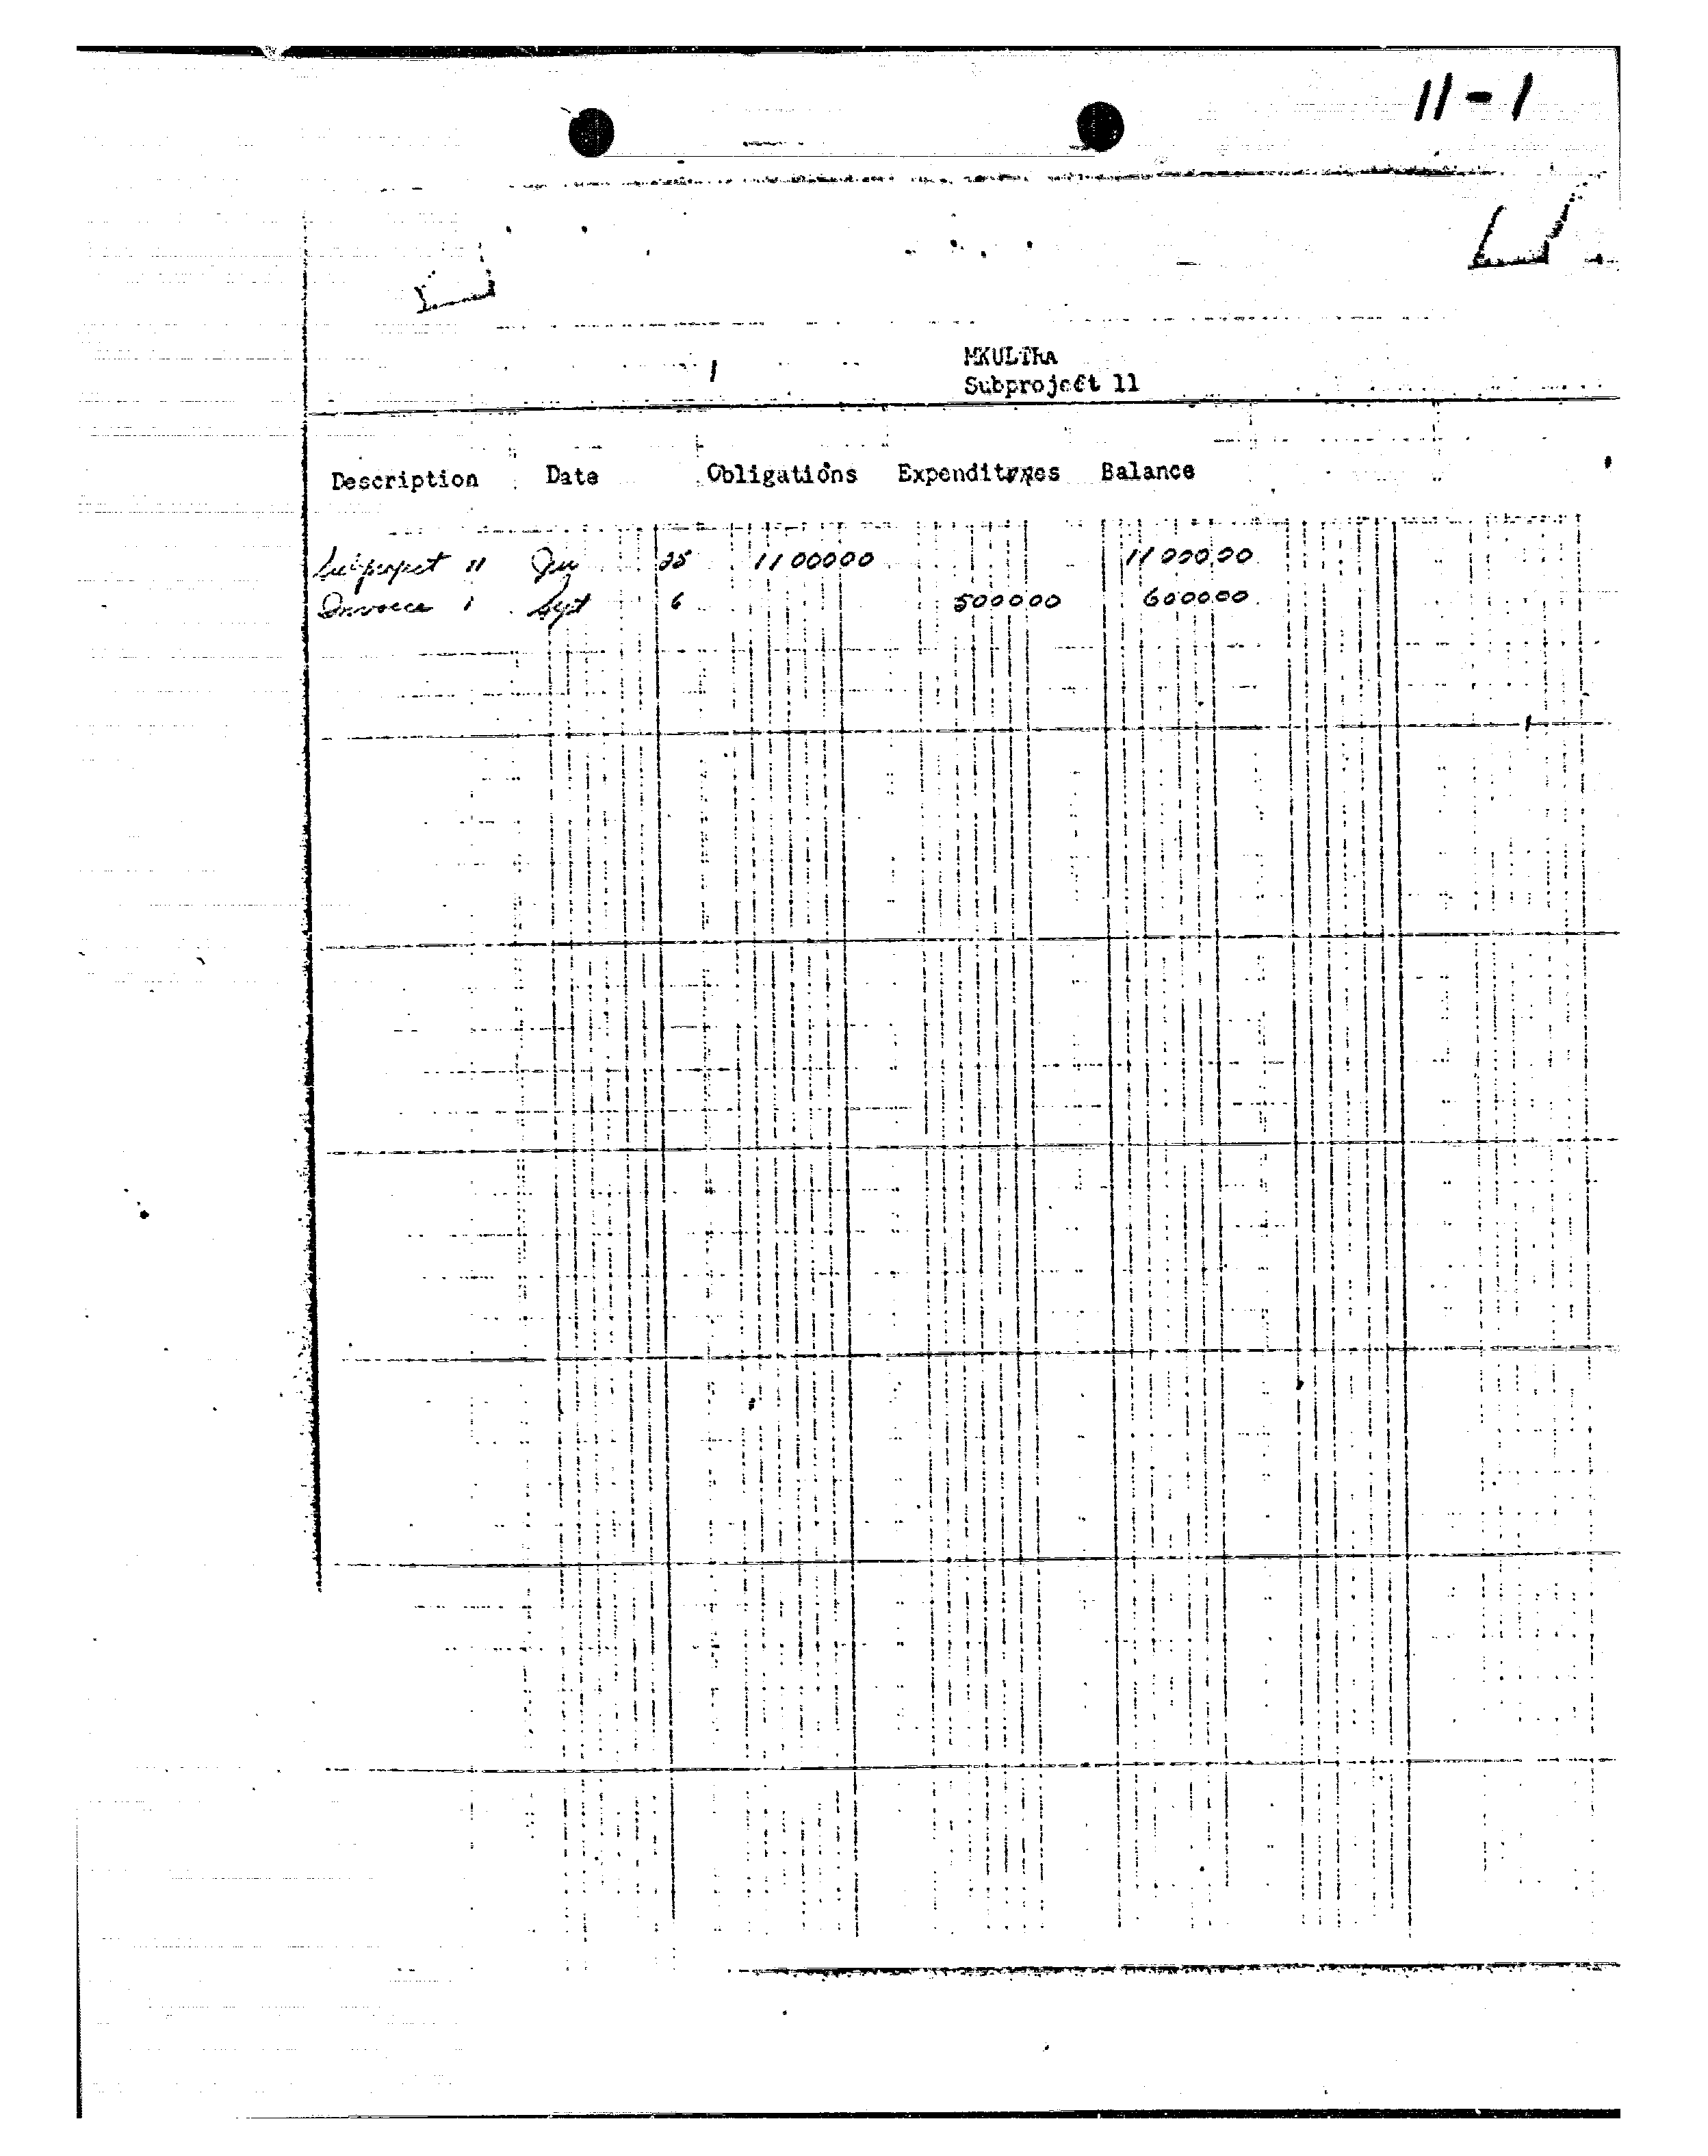 11-1
MKULTRA
Subproject 11
Description Date Obligations Expenditures Balance
Subproject 11 25 1100000 1100000
Invoice 1 Sept 6 500000 600000